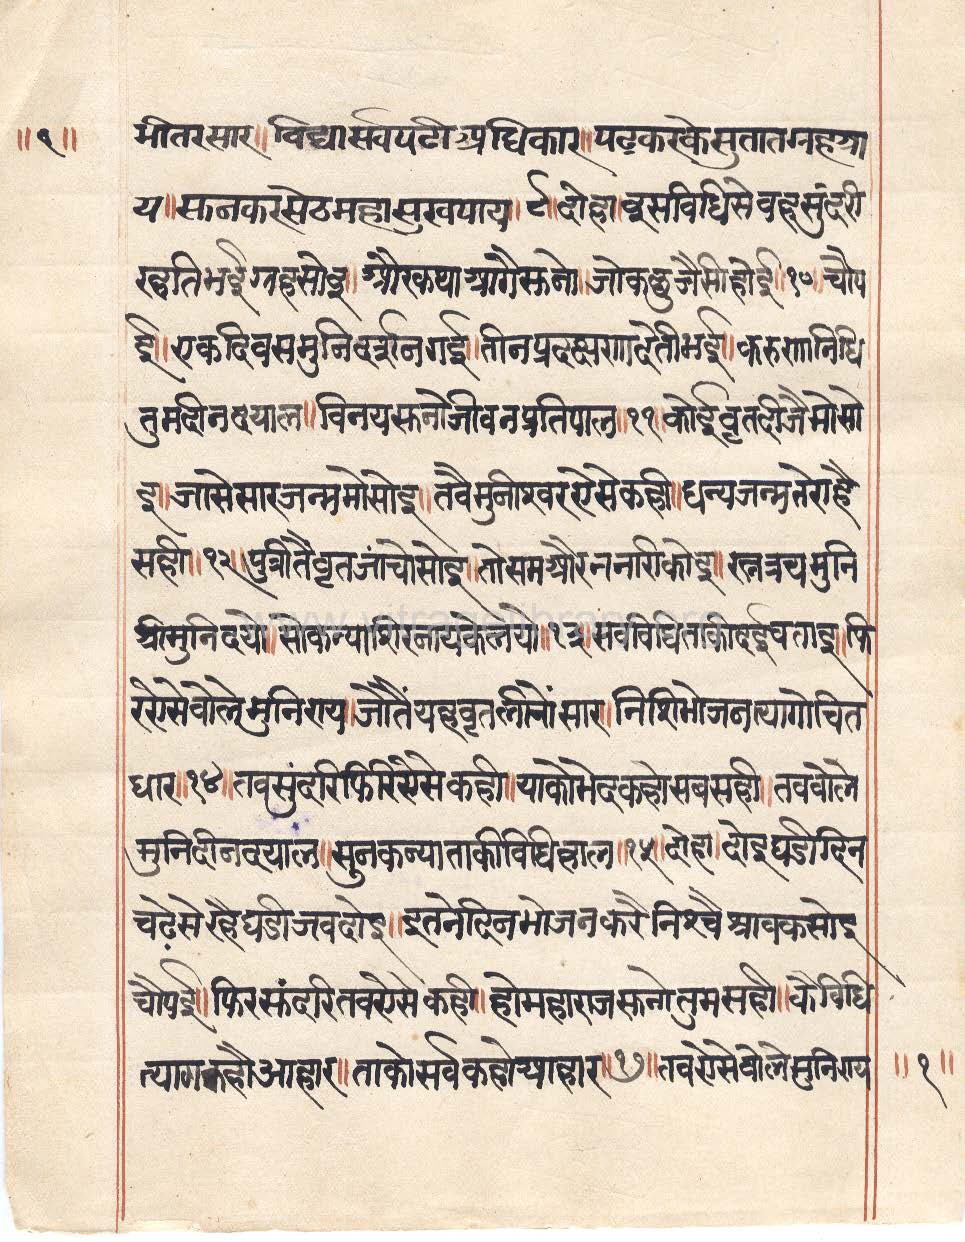 ॥१॥ मीतरसार॥ विद्यासर्वपटीअधिकार॥ पढकरकेसुतातग्रहआ
य॥ सुनकरसेठमहासुखपाय॥ ९॥दोहा॥ इसविधिसेवहसुंदरी
रहतिभईग्रहसोइ॥ औरकथाआगैसुनो॥ जोकछुजैसीहोई॥१०॥ चौप
ई॥ एकदिवसमुनिदर्शनगई॥ तीनप्रदक्षणादेतीभई॥ करुणानिधि
तुमदीनदयाल॥ विनयसुनोजीवनप्रतिपाल॥११॥ कोईवृतदीजैमोसो
इ॥ जासेसारजन्ममोसोइ॥ तवैमुनीश्वरऐसेकही॥ धन्यजन्मतेराहै
सही॥१२॥ पुत्रीतैंवृतजांचोसोइ॥ तोसमऔरननारीकोइ॥ रत्नत्रयमुनि
श्रीमुनिदयो॥ सोकन्याशिरनायकेलयो॥१३॥ सर्वविधिताकीदईवताइ॥ फि
रऐसेवोलेमुनिराय॥ जोतैंयहवृतलीनोंसार॥ निशिभोजनत्यागोचित
धार॥१४॥ तवसुंदरिफिरिऐसेकही॥ याकोभेदकहोसबसही॥ तववोले
मुनिदीनदयाल॥ सुनकन्याताकीविधिहाल॥१५॥ दोहा॥ दोइघडीदिन
चढेसेरहैघडीजवदोइ॥ इतनेदिनभोजनकरैनिश्चैश्रावकसोइ
चौपई॥ फिरसुंदरितवऐसेकही॥ होमहाराजसुनोतुमसही॥ कैविधि
त्यागकहौआहार॥ ताकोसर्वकहोव्याहार॥१७॥ तवऐसेवोलेमुनिराय ॥१॥
www.vitragelibrary.org